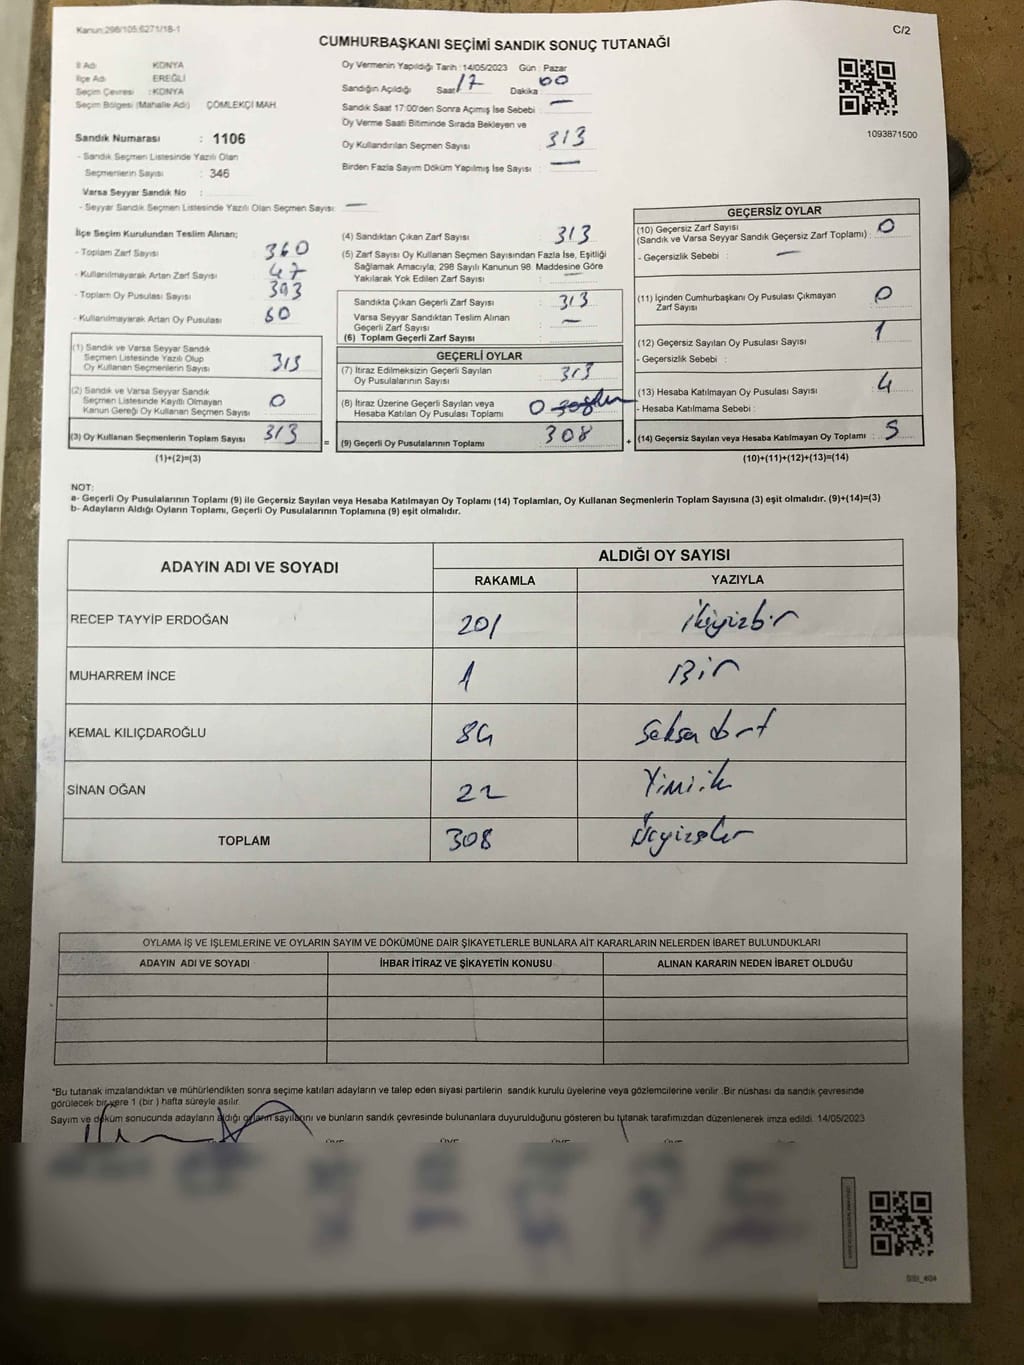 Kanun:298/105:6271/18-1
C/2
CUMHURBAŞKANI SEÇİMİ SANDIK SONUÇ TUTANAĞI
İl Adı : KONYA
İlçe Adı : EREĞLİ
Seçim Çevresi : KONYA
Seçim Bölgesi (Mahalle Adı) ÇÖMLEKÇİ MAH.
Sandık Numarası : 1106
- Sandık Seçmen Listesinde Yazılı Olan
Seçmenlerin Sayısı : 346
Varsa Seyyar Sandık No :
- Seyyar Sandık Seçmen Listesinde Yazılı Olan Seçmen Sayısı: —
Oy Vermenin Yapıldığı Tarih :14/05/2023 Gün : Pazar
Sandığın Açıldığı Saat 17 Dakika 00
Sandık Saat 17:00'den Sonra Açımış İse Sebebi : —
Oy Verme Saati Bitiminde Sırada Bekleyen ve
Oy Kullandırılan Seçmen Sayısı : 313
Birden Fazla Sayım Döküm Yapılmış İse Sayısı : —
1093871500
İlçe Seçim Kurulundan Teslim Alınan;
- Toplam Zarf Sayısı : 360
- Kullanılmayarak Artan Zarf Sayısı : 47
- Toplam Oy Pusulası Sayısı : 393
- Kullanılmayarak Artan Oy Pusulası : 80
(1) Sandık ve Varsa Seyyar Sandık
Seçmen Listesinde Yazılı Olup
Oy Kullanan Seçmenlerin Sayısı : 313
(2) Sandık ve Varsa Seyyar Sandık
Seçmen Listesinde Kayıtlı Olmayan
Kanun Gereği Oy Kullanan Seçmen Sayısı : 0
(3) Oy Kullanan Seçmenlerin Toplam Sayısı : 313
(1)+(2)=(3)
(4) Sandıktan Çıkan Zarf Sayısı : 313
(5) Zarf Sayısı Oy Kullanan Seçmen Sayısından Fazla İse, Eşitliği
Sağlamak Amacıyla, 298 Sayılı Kanunun 98. Maddesine Göre
Yakılarak Yok Edilen Zarf Sayısı : —
Sandıkta Çıkan Geçerli Zarf Sayısı : 313
Varsa Seyyar Sandıktan Teslim Alınan
Geçerli Zarf Sayısı : —
(6) Toplam Geçerli Zarf Sayısı :
GEÇERLİ OYLAR
(7) İtiraz Edilmeksizin Geçerli Sayılan
Oy Pusulalarının Sayısı : 313
(8) İtiraz Üzerine Geçerli Sayılan veya
Hesaba Katılan Oy Pusulası Toplamı : 0
= (9) Geçerli Oy Pusulalarının Toplamı : 308 +
GEÇERSİZ OYLAR
(10) Geçersiz Zarf Sayısı
(Sandık ve Varsa Seyyar Sandık Geçersiz Zarf Toplamı) : 0
- Geçersizlik Sebebi : —
(11) İçinden Cumhurbaşkanı Oy Pusulası Çıkmayan
Zarf Sayısı : 0
(12) Geçersiz Sayılan Oy Pusulası Sayısı : 1
- Geçersizlik Sebebi :
(13) Hesaba Katılmayan Oy Pusulası Sayısı : 4
- Hesaba Katılmama Sebebi :
(14) Geçersiz Sayılan veya Hesaba Katılmayan Oy Toplamı : 5
(10)+(11)+(12)+(13)=(14)
NOT:
a- Geçerli Oy Pusulalarının Toplamı (9) ile Geçersiz Sayılan veya Hesaba Katılmayan Oy Toplamı (14) Toplamları, Oy Kullanan Seçmenlerin Toplam Sayısına (3) eşit olmalıdır. (9)+(14)=(3)
b- Adayların Aldığı Oyların Toplamı, Geçerli Oy Pusulalarının Toplamına (9) eşit olmalıdır.
ADAYIN ADI VE SOYADI
ALDIĞI OY SAYISI
RAKAMLA YAZIYLA
RECEP TAYYİP ERDOĞAN 201 ikiyüzbir
MUHARREM İNCE 1 Bir
KEMAL KILIÇDAROĞLU 84 Seksen dört
SİNAN OĞAN 22 Yirmiiki
TOPLAM 308 Üçyüzsekiz
OYLAMA İŞ VE İŞLEMLERİNE VE OYLARIN SAYIM VE DÖKÜMÜNE DAİR ŞİKAYETLERLE BUNLARA AİT KARARLARIN NELERDEN İBARET BULUNDUKLARI
ADAYIN ADI VE SOYADI İHBAR İTİRAZ VE ŞİKAYETİN KONUSU ALINAN KARARIN NEDEN İBARET OLDUĞU
*Bu tutanak imzalandıktan ve mühürlendikten sonra seçime katılan adayların ve talep eden siyasi partilerin sandık kurulu üyelerine veya gözlemcilerine verilir .Bir nüshası da sandık çevresinde
görülecek bir yere 1 (bir ) hafta süreyle asılır.
Sayım ve döküm sonucunda adayların aldığı oyların sayılarını ve bunların sandık çevresinde bulunanlara duyurulduğunu gösteren bu tutanak tarafımızdan düzenlenerek imza edildi. 14/05/2023